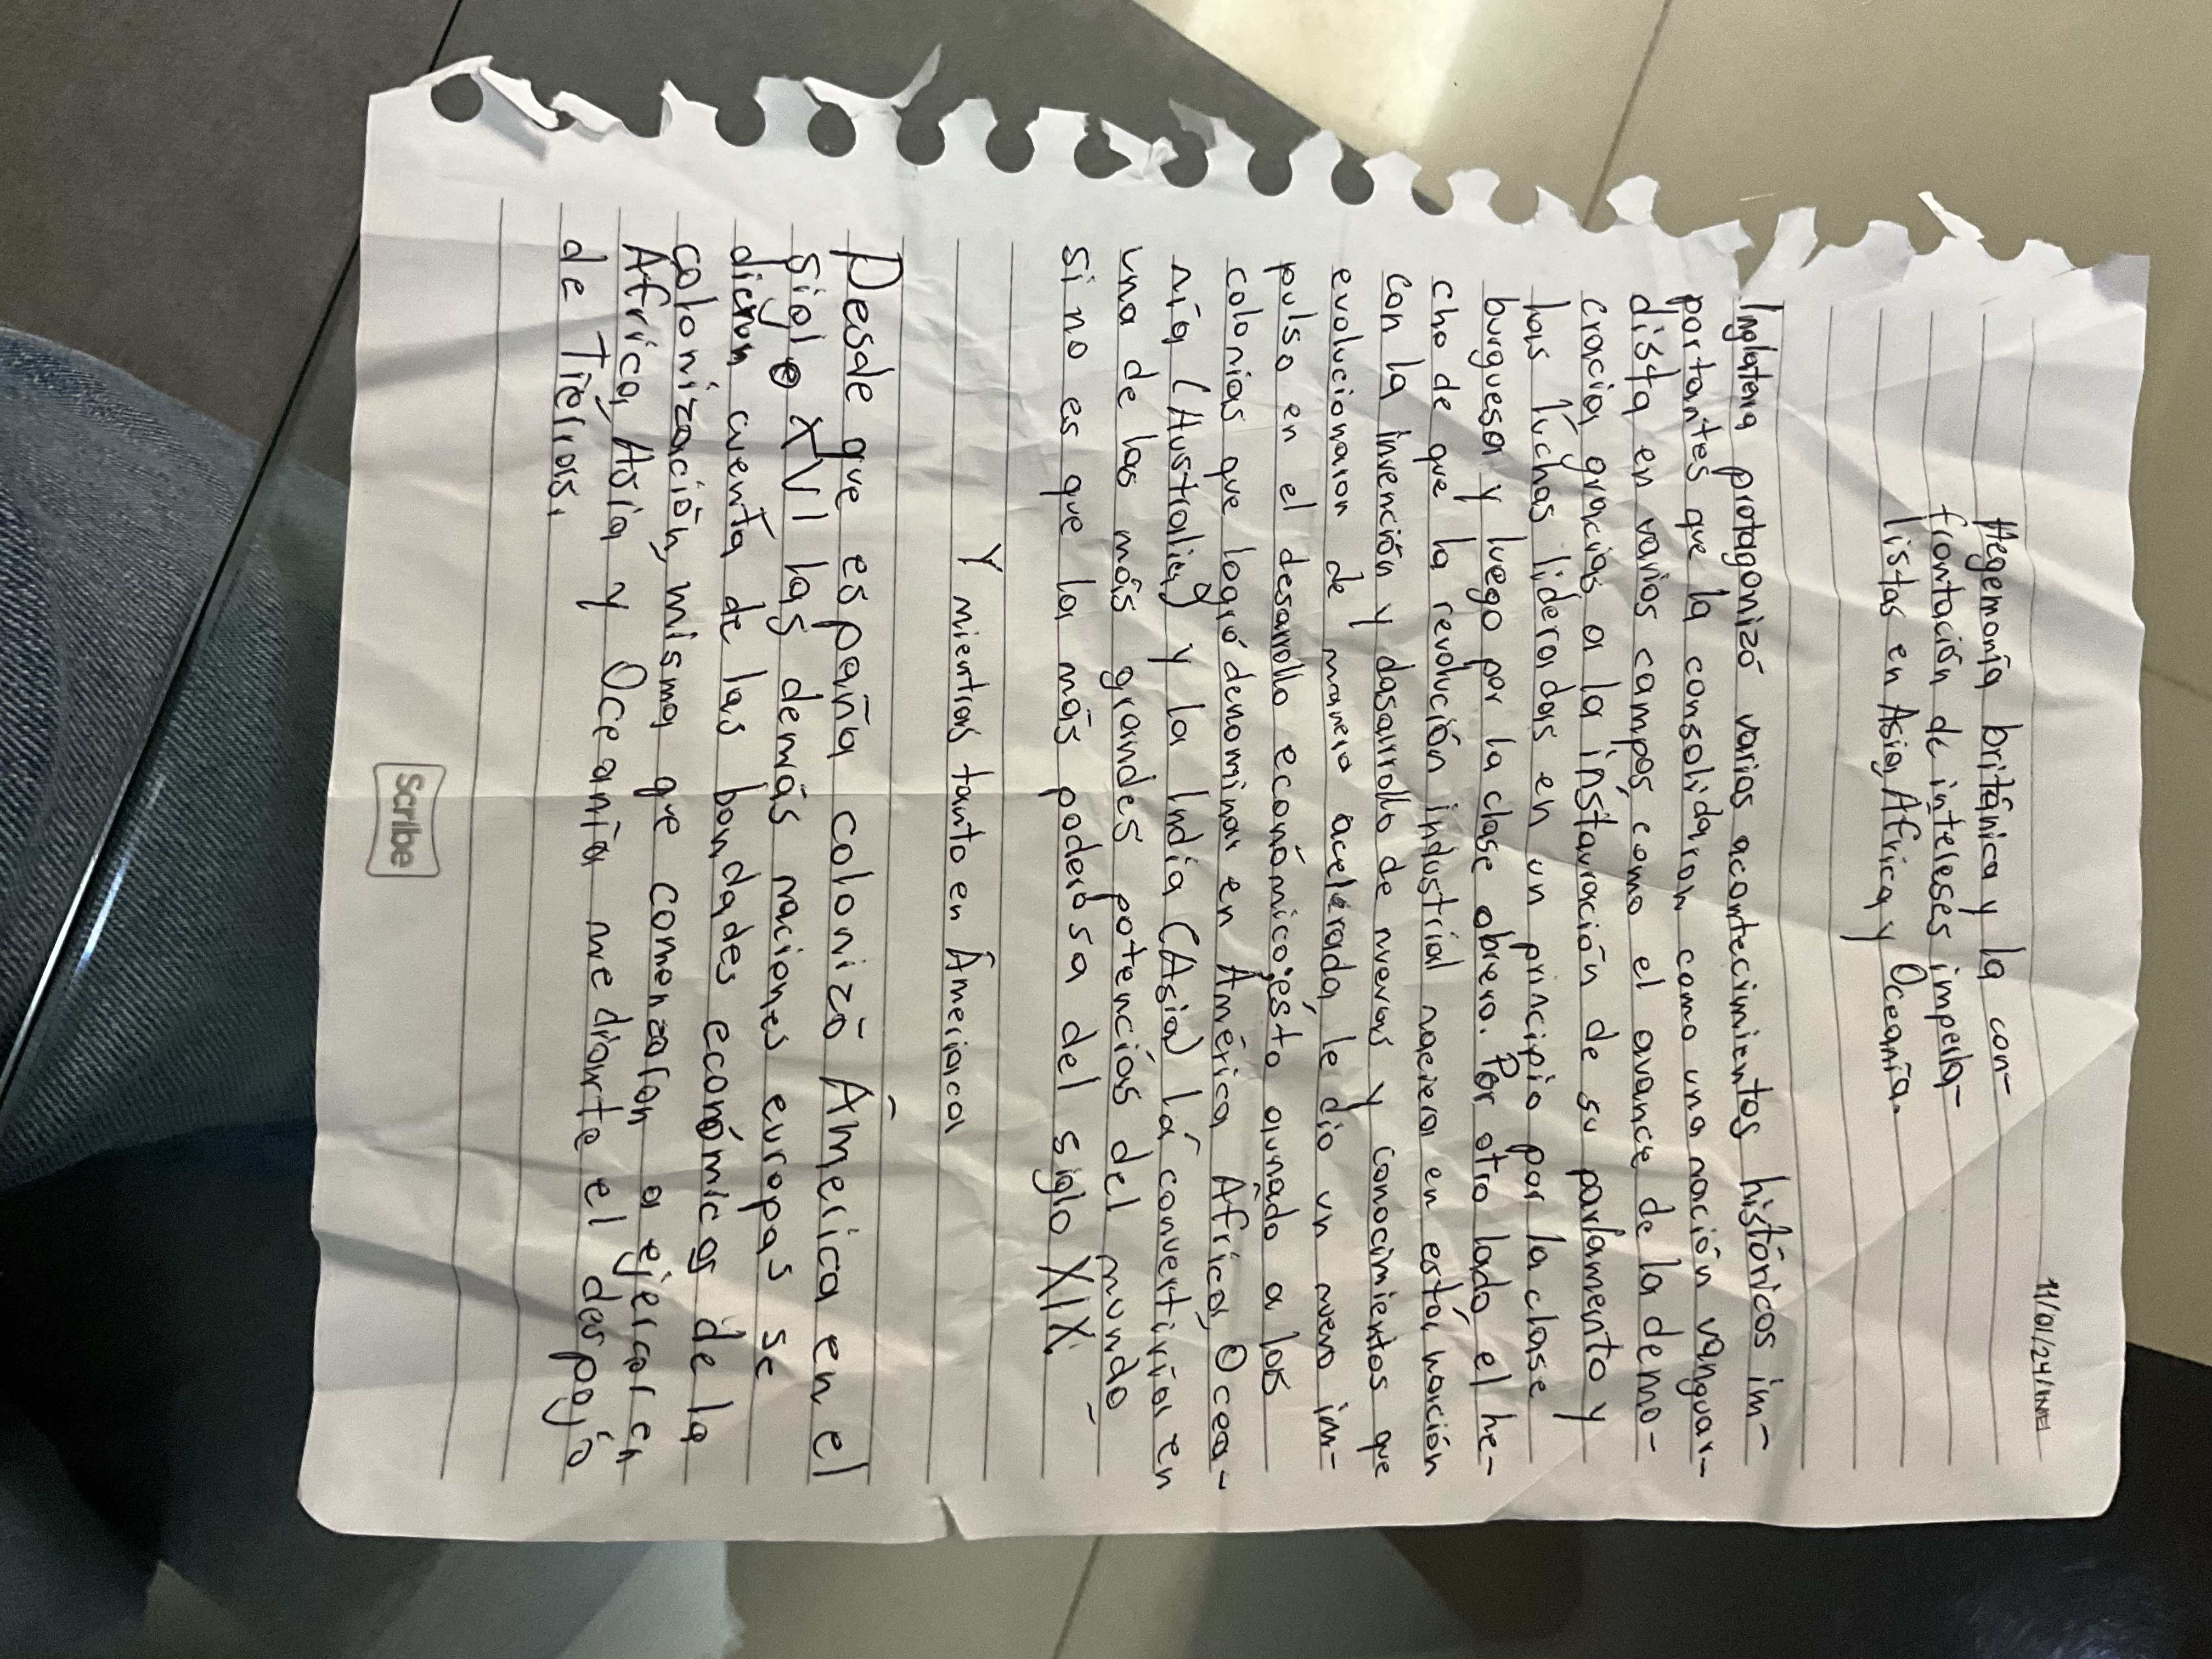 11/01/24
Hegemonía británica y la con-
frontación de intereses imperia-
listas en Asia, Africa y Oceanía.
Inglaterra protagonizó varios acontecimientos históricos im-
portantes que la consolidaron como una nación vanguar-
dista en varios campos como el avance de la demo-
cracia, gracias a la instauración de su parlamento y
las luchas lideradas en un principio por la clase
burguesa y luego por la clase obrera. Por otro lado el he-
cho de que la revolución industrial naciera en esta nación
con la invención y dasarrollo de nuevas y conocimientos que
evolucionaron de manera acelerada, le dio un nuevo im-
pulso en el desarrollo económico; ésto aunado a las
colonias que logró denominar en América, Africa, Ocea-
nía (Australia) y la India (Asia) la convertiría en
una de las más grandes potencias del mundo
si no es que la más poderosa del siglo XIX.
Y mientras tanto en Ameriaca
Desde que españa colonizó America en el
siglo XVI las demás naciones europas se
dieron cuenta de las bondades económicas de la
colonización, misma que comenzaron a ejercer en
Africa, Asia y Oceanía mediante el despojo
de Tierras.
Scribe